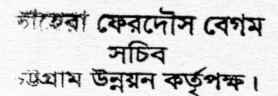 তাহেরা ফেরদৌস বেগম
সচিব
চট্টগ্রাম উন্নয়ন কর্তৃপক্ষ।